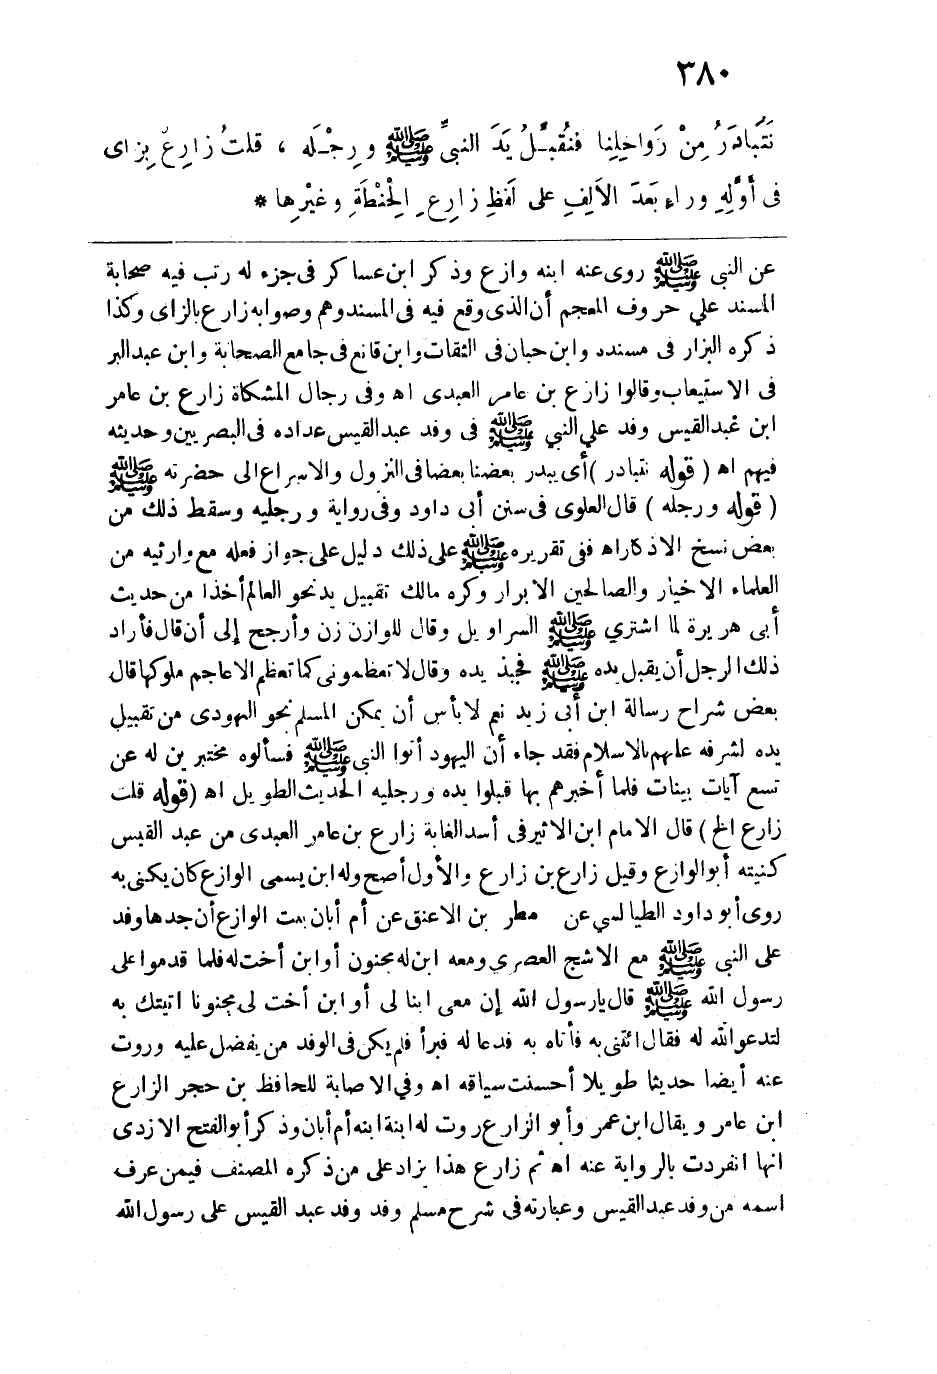 ٣٨٠
نَتَبَادَرُ مِنْ رَوَاحِلِنا فنُقبِّلُ يَدَ النبيِّ ﷺ ورِجْلَه ، قلتُ زارِعٌ بِزاى
فى أوَّلِهِ وراءٍ بَعدَ الألِفِ على لَفظِ زارِعِ الحِنْطَةِ وغيْرِها *
عن النبى ﷺ روى عنه ابنه وازع وذكر ابن عساكر فى جزء له رتب فيه صحابة
المسند علي حروف المعجم أن الذى وقع فيه فى المسند وهم وصوابه زارع بالزاى وكذا
ذكره البزار فى مسنده وابن حبان فى الثقات وابن قانع فى جامع الصحابة وابن عبد البر
فى الاستيعاب وقالوا زارع بن عامر العبدى اه وفى رجال المشكاة زارع بن عامر
ابن عبد القيس وفد علي النبي ﷺ فى وفد عبد القيس عداده فى البصريين وحديثه
فيهم اه ( قوله نتبادر ) أى يبدر بعضنا بعضا فى النزول والاسراع الى حضرته ﷺ
( قوله ورجله ) قال العلوى فى سنن أبى داود وفى رواية ورجليه وسقط ذلك من
بعض نسخ الاذكار اه ففى تقريره ﷺ على ذلك دليل على جواز فعله مع وارثيه من
العلماء الاخيار والصالحين الابرار وكره مالك تقبيل يد نحو العالم أخذا من حديث
أبى هريرة لما اشتري ﷺ السراويل وقال للوازن زن وأرجح إلى أن قال فأراد
ذلك الرجل أن يقبل يده ﷺ فجبذ يده وقال لا تعظمونى كما تعظم الاعاجم ملوكها قال
بعض شراح رسالة ابن أبى زيد نعم لا بأس أن يمكن المسلم نحو اليهودى من تقبيل
يده لشرفه عليهم بالاسلام فقد جاء أن اليهود أتوا النبى ﷺ فسألوه مختبرين له عن
تسع آيات بينات فلما أخبرهم بها قبلوا يده ورجليه الحديث الطويل اه ( قوله قلت
زارع الخ ) قال الامام ابن الاثير فى أسد الغابة زارع بن عامر العبدى من عبد القيس
كنيته أبو الوازع وقيل زارع بن زارع والأول أصح وله ابن يسمى الوازع كان يكنى به
روى أبو داود الطيالسي عن مطر بن الاعنق عن أم أبان بنت الوازع أن جدها وفد
على النبى ﷺ مع الاشج العصري ومعه ابن له مجنون أو ابن أخت له فلما قدموا على
رسول الله ﷺ قال يارسول الله إن معى ابنا لى أو ابن أخت لى مجنونا اتيتك به
لتدعو الله له فقال ائتنى به فأتاه به فدعا له فبرأ فلم يكن فى الوفد من يفضل عليه وروت
عنه أيضا حديثا طويلا أحسنت سياقه اه وفي الاصابة للحافظ بن حجر الزارع
ابن عامر ويقال ابن عمر وأبو الزارع روت له ابنة ابنه أم أبان وذكر أبو الفتح الازدى
انها انفردت بالرواية عنه اه ثم زارع هذا يزاد على من ذكره المصنف فيمن عرف
اسمه من وفد عبد القيس وعبارته فى شرح مسلم وفد وفد عبد القيس على رسول الله